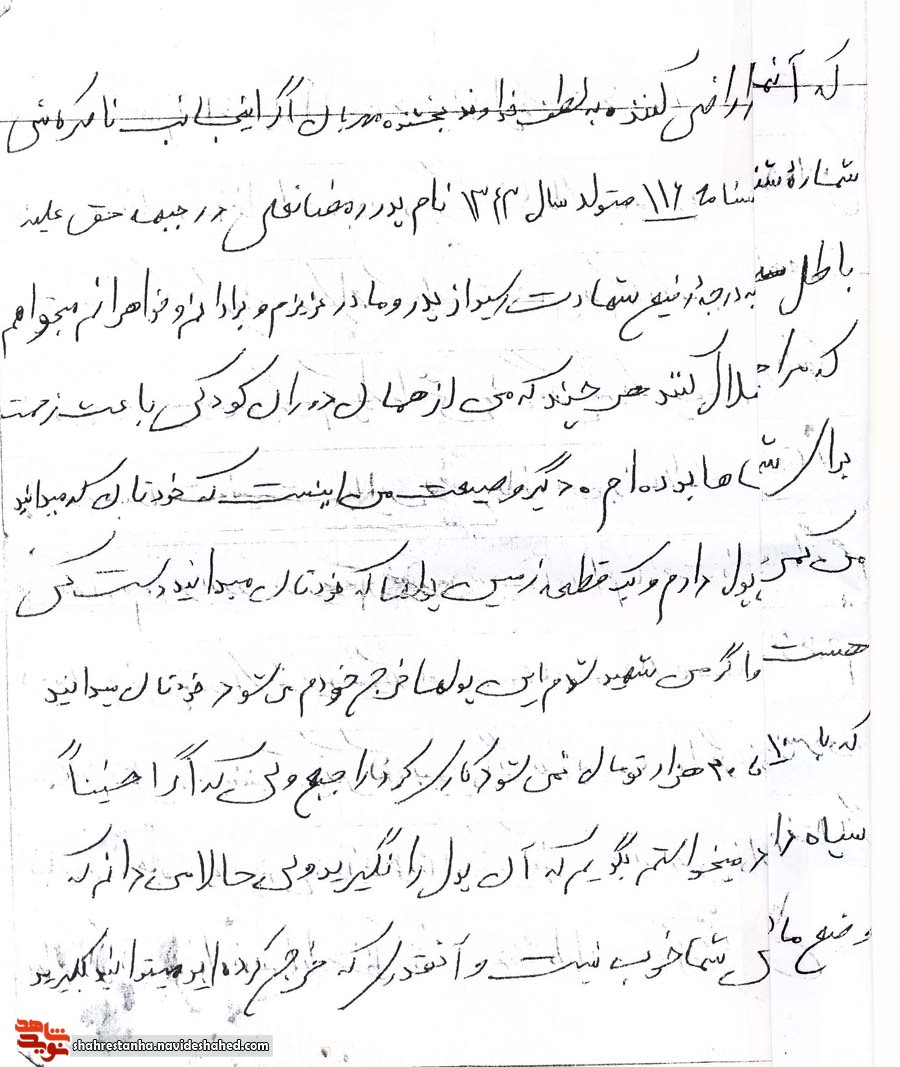 که آنها را راضی کننده به لطف خداوند بخشنده مهربان اگر اینجانب
شمارهٔ شناسنامه ۱۱۶ متولد سال ۱۳۴۳ نام پدر رمضانعلی در جبهه حق علیه
باطل به درجهٔ رفیع شهادت رسید از پدر و مادر عزیزم و برادرانم و خواهرانم میخواهم
که مرا حلال کنند هر چند که من از همان دوران کودکی باعث زحمت
برای شماها بوده‌ام و دیگر وصیعت من اینست که خودتان که میدانید
من کمی پول دارم و یک قطعه زمین پولها که خودتان میدانید دست کی
هست و اگر من شهید شدم این پولها خرج خودم می شود خودتان میدانید
که با ۱۰ تا ۲۰ هزار تومان نمی شود کاری کرد راجبع ولی که اگر احیناً
سپاه داد میخواستم بگویم که آن پول را نگیرید ولی حالا می دانم که
وضع مالی شما خوب نیست و آنقدری که خرج کرده اید میتوانید بگیرید
نوید شاهد
shahrestanha.navideshahed.com